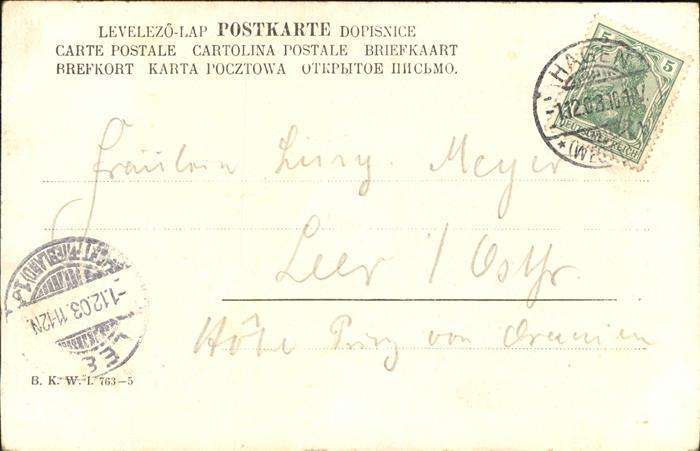 LEVELEZŐ-LAP POSTKARTE DOPISNICE
CARTE POSTALE CARTOLINA POSTALE BRIEFKAART
BREFKORT KARTA POCZTOWA ОТКРЫТОЕ ПИСЬМО.
5 5
HAGEN
1.12.03.10-11V.
*(WESTF.)
Fräulein Meyer
Leer / Ostfr.
Hôtel Prinz von Oranien
-1.12.03.11-12N.
LEER
B. K. W. I. 763-5